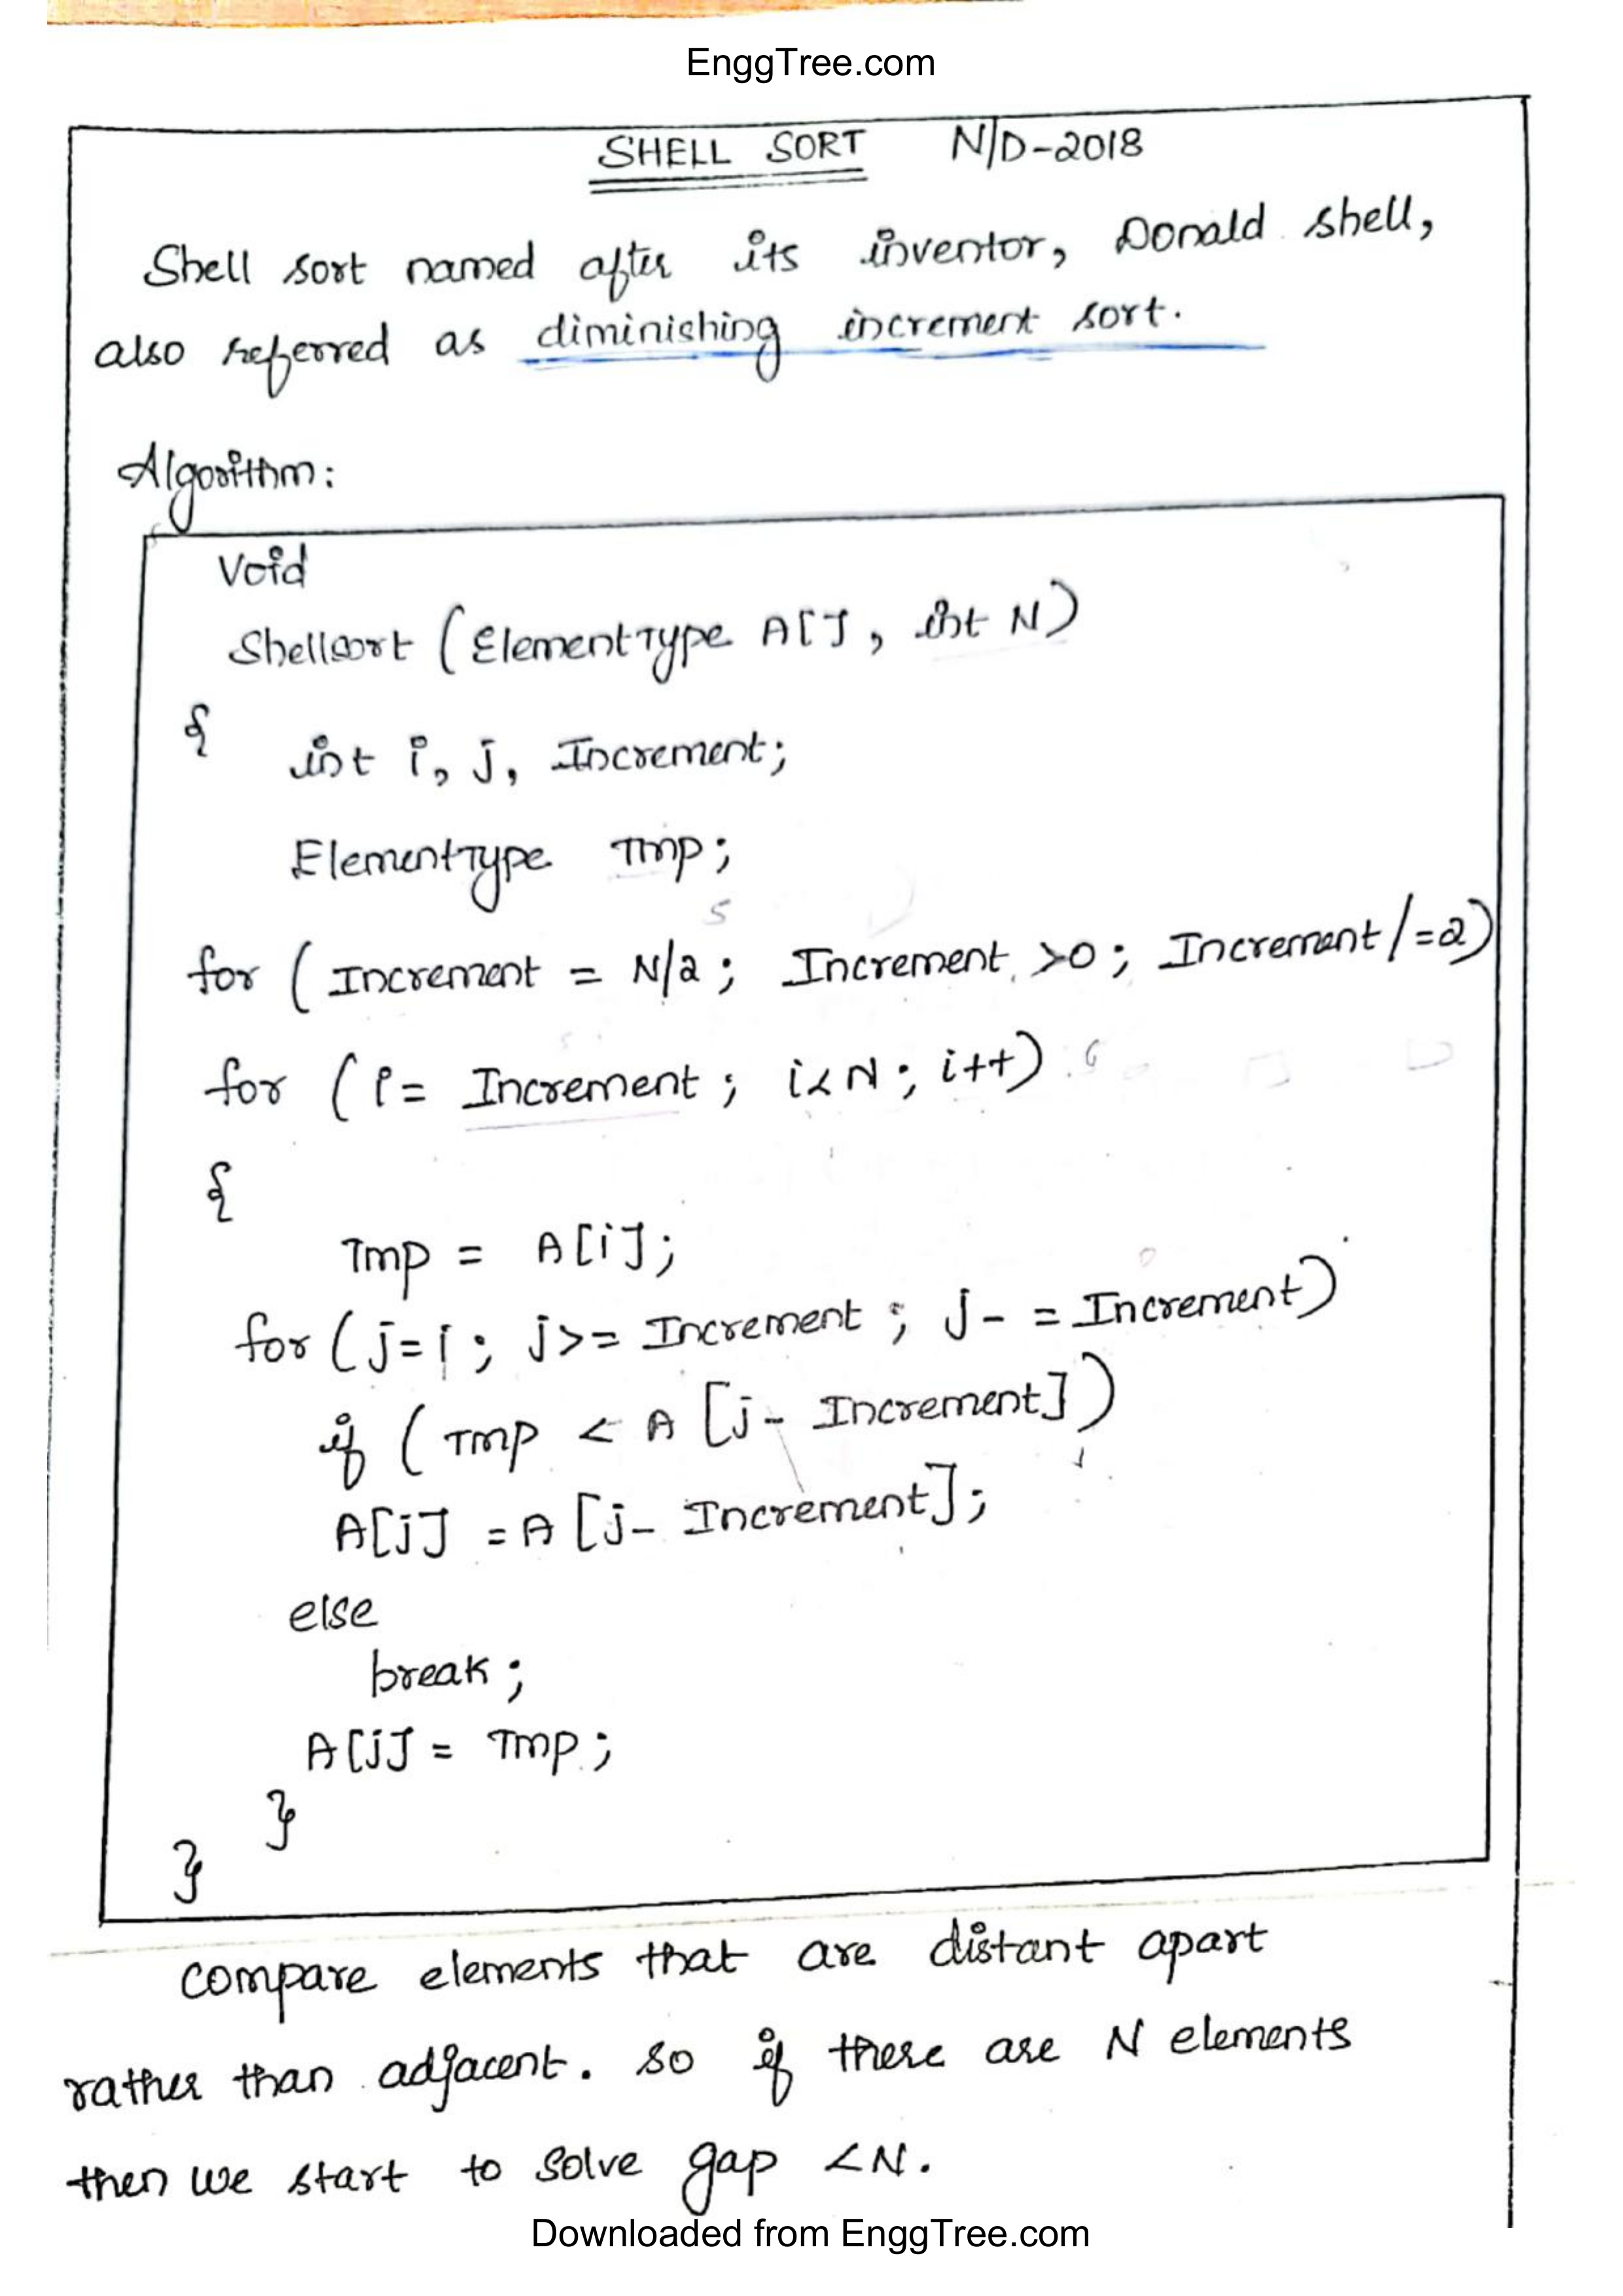 EnggTree.com
SHELL SORT N/D-2018
Shell sort named after its inventor, Donald shell,
also referred as diminishing increment sort.
Algorithm:
Void
Shellsort (ElementType A[], int N)
{
int i, j, Increment;
ElementType Tmp;
5
for (Increment = N/2; Increment >0; Increment /=2)
for (i= Increment; i<N; i++) 6
{
Tmp = A[i];
for (j=i; j>= Increment; j- = Increment)
if (Tmp < A [j- Increment])
A[j] = A [j- Increment];
else
break;
A[j] = Tmp;
}
}
compare elements that are distant apart
rather than adjacent. so if there are N elements
then we start to solve gap <N.
Downloaded from EnggTree.com